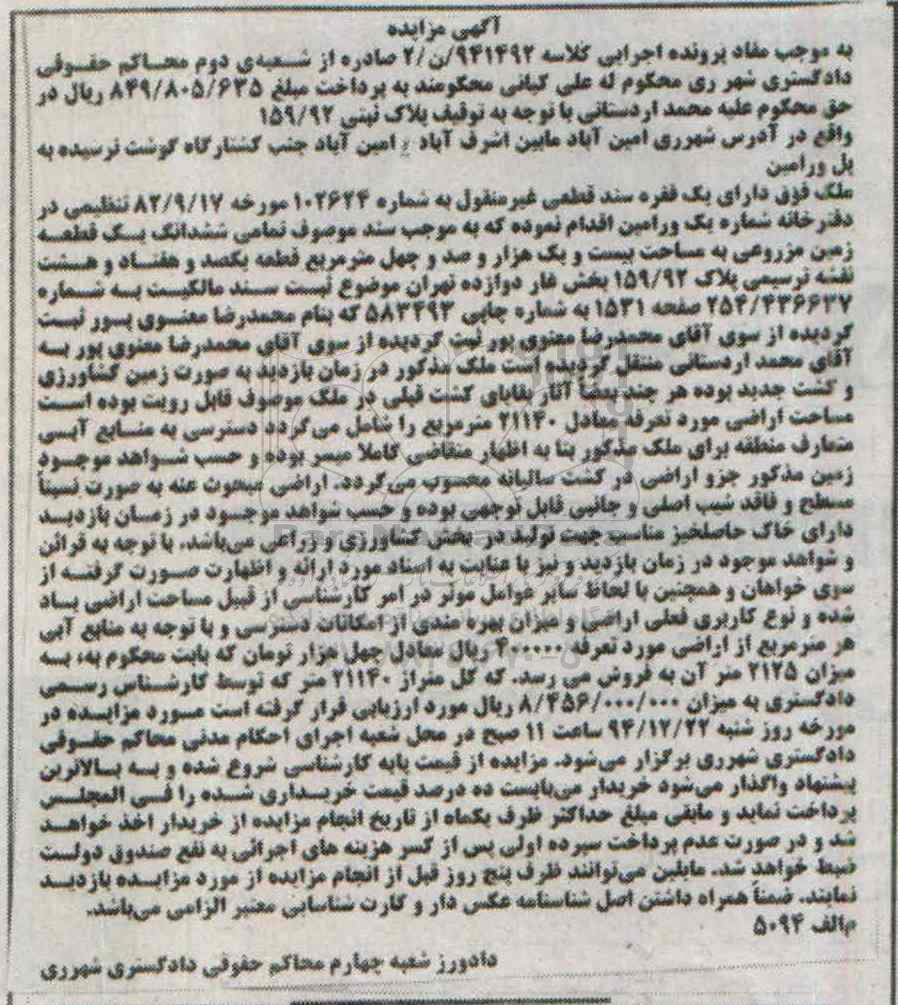 آگهی مزایده
به موجب مفاد پرونده اجرایی کلاسه ۹۴۱۴۹۲/ن/۲ صادره از شعبه‌ی دوم محاکم حقوقی
دادگستری شهر ری محکوم له علی کیانی محکومند به پرداخت مبلغ ۸۴۹/۸۰۵/۶۳۵ ریال در
حق محکوم علیه محمد اردستانی با توجه به توقیف پلاک ثبتی ۱۵۹/۹۲
واقع در آدرس شهرری امین آباد مابین اشرف آباد و امین آباد جنب کشتارگاه گوشت نرسیده به
پل ورامین
ملک فوق دارای یک فقره سند قطعی غیرمنقول به شماره ۱۰۲۶۲۴ مورخه ۸۲/۹/۱۷ تنظیمی در
دفترخانه شماره یک ورامین اقدام نموده که به موجب سند موصوف تمامی ششدانگ یک قطعه
زمین مزروعی به مساحت بیست و یک هزار و صد و چهل مترمربع قطعه یکصد و هفتاد و هشت
نقشه ترسیمی پلاک ۱۵۹/۹۲ بخش غار دوازده تهران موضوع ثبت سند مالکیت به شماره
۲۵۴/۴۳۶۶۳۷ صفحه ۱۵۳۱ به شماره چاپی ۵۸۳۴۹۳ که بنام محمدرضا معنوی پور ثبت
گردیده از سوی آقای محمدرضا معنوی پور ثبت گردیده از سوی آقای محمدرضا معنوی پور به
آقای محمد اردستانی منتقل گردیده است ملک مذکور در زمان بازدید به صورت زمین کشاورزی
و کشت جدید بوده هر چند بعضاً آثار بقایای کشت قبلی در ملک موصوف قابل رویت بوده است
مساحت اراضی مورد تعرفه معادل ۲۱۱۴۰ مترمربع را شامل می‌گردد دسترسی به منابع آبی
متعارف منطقه برای ملک مذکور بنا به اظهار متقاضی کاملا میسر بوده و حسب شواهد موجود
زمین مذکور جزو اراضی در کشت سالیانه محسوب می‌گردد. اراضی مبحوث عنه به صورت نسبتاً
مسطح و فاقد شیب اصلی و جانبی قابل توجهی بوده و حسب شواهد موجود در زمان بازدید
دارای خاک حاصلخیز مناسب جهت تولید در بخش کشاورزی و زراعی می‌باشد. با توجه به قرائن
و شواهد موجود در زمان بازدید و نیز با عنایت به اسناد مورد ارائه و اظهارت صورت گرفته از
سوی خواهان و همچنین با لحاظ سایر عوامل موثر در امر کارشناسی از قبیل مساحت اراضی یاد
شده و نوع کاربری فعلی اراضی و میزان بهره مندی از امکانات دسترسی و با توجه به منابع آبی
هر مترمربع از اراضی مورد تعرفه ۴۰۰۰۰۰ ریال معادل چهل هزار تومان که بابت محکوم به، به
میزان ۲۱۲۵ متر آن به فروش می رسد. که کل متراژ ۲۱۱۴۰ متر که توسط کارشناس رسمی
دادگستری به میزان ۸/۴۵۶/۰۰۰/۰۰۰ ریال مورد ارزیابی قرار گرفته است مورد مزایده در
مورخه روز شنبه ۹۴/۱۲/۲۲ ساعت ۱۱ صبح در محل شعبه اجرای احکام مدنی محاکم حقوقی
دادگستری شهرری برگزار می‌شود. مزایده از قیمت پایه کارشناسی شروع شده و به بالاترین
پیشنهاد واگذار می‌شود خریدار می‌بایست ده درصد قیمت خریداری شده را فی المجلس
پرداخت نماید و مابقی مبلغ حداکثر ظرف یکماه از تاریخ انجام مزایده از خریدار اخذ خواهد
شد و در صورت عدم پرداخت سپرده اولی پس از کسر هزینه های اجرائی به نفع صندوق دولت
ضبط خواهد شد. مایلین می‌توانند ظرف پنج روز قبل از انجام مزایده از مورد مزایده بازدید
نمایند. ضمناً همراه داشتن اصل شناسنامه عکس دار و کارت شناسایی معتبر الزامی می‌باشد.
م‌الف ۵۰۹۴
دادورز شعبه چهارم محاکم حقوقی دادگستری شهرری